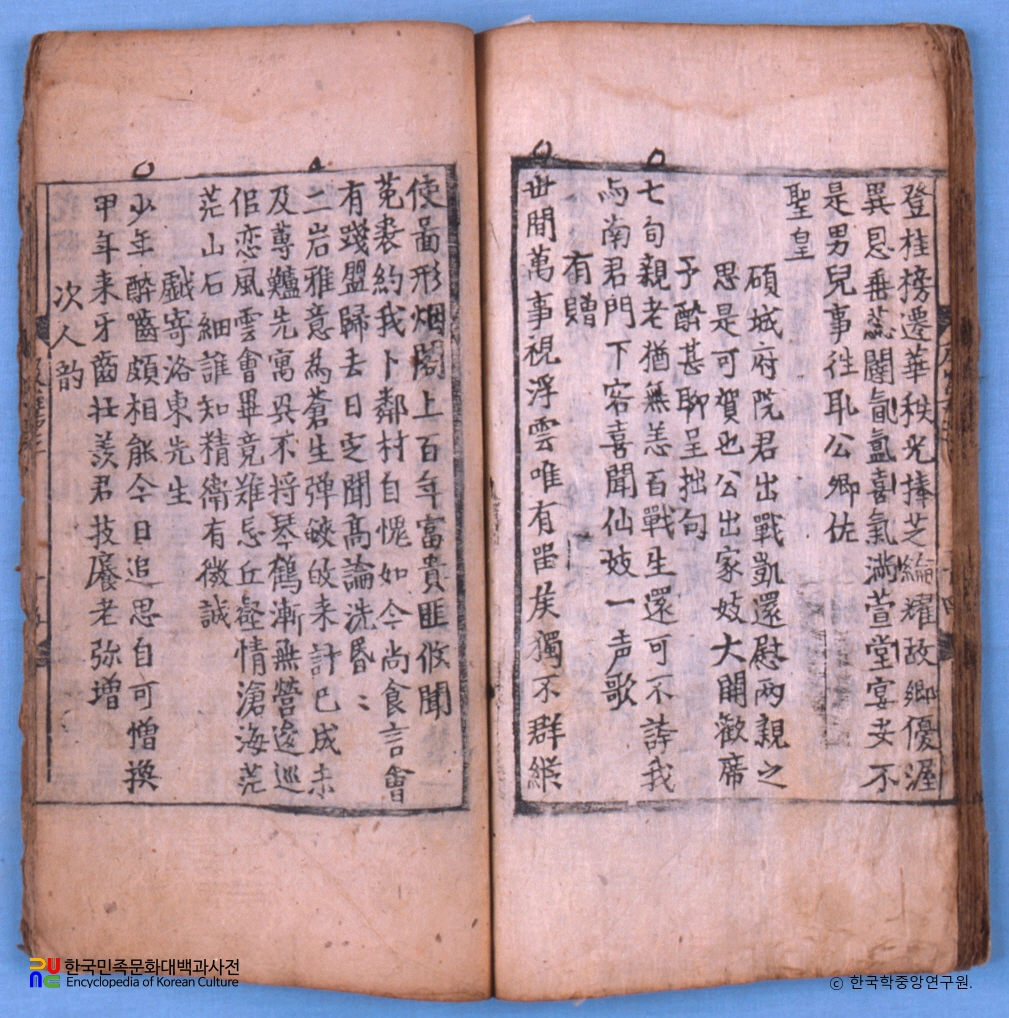 登桂榜遷華秩光捧芝綸耀故鄉優渥
異恩垂蘂闕氤氳喜氣滿萱堂宴安不
是男兒事徃耴公卿佐
聖皇
碩城府院君出戰凱還慰兩親之
思是可賀也公出家妓大開歡席
予酣甚聊呈拙句
七旬親老猶無恙百戰生還可不誇我
南君門下客喜聞仙妓一声歌
有贈
世間萬事視浮雲唯有留矦獨不群縱
使啚形烟閣上百年富貴匪攸聞
菟裘約我卜鄰村自愧如今尚食言會
有踐盟歸去日芝聞高論洗昬〻
二岩雅意為蒼生弹皎來計已成未
及蓴鱸先寓㒷不将琴鶴漸無營逡巡
侶恋風雲會畢竟难忘丘壑情滄海茫
茫山石細誰知精衛有微誠
戱寄洛東先生
少年醉嚙頗相能今日追思自可憎換
甲年来牙齒壮羡君技癢老弥增
次人韵
한국민족문화대백과사전
Encyclopedia of Korean Culture
© 한국학중앙연구원.